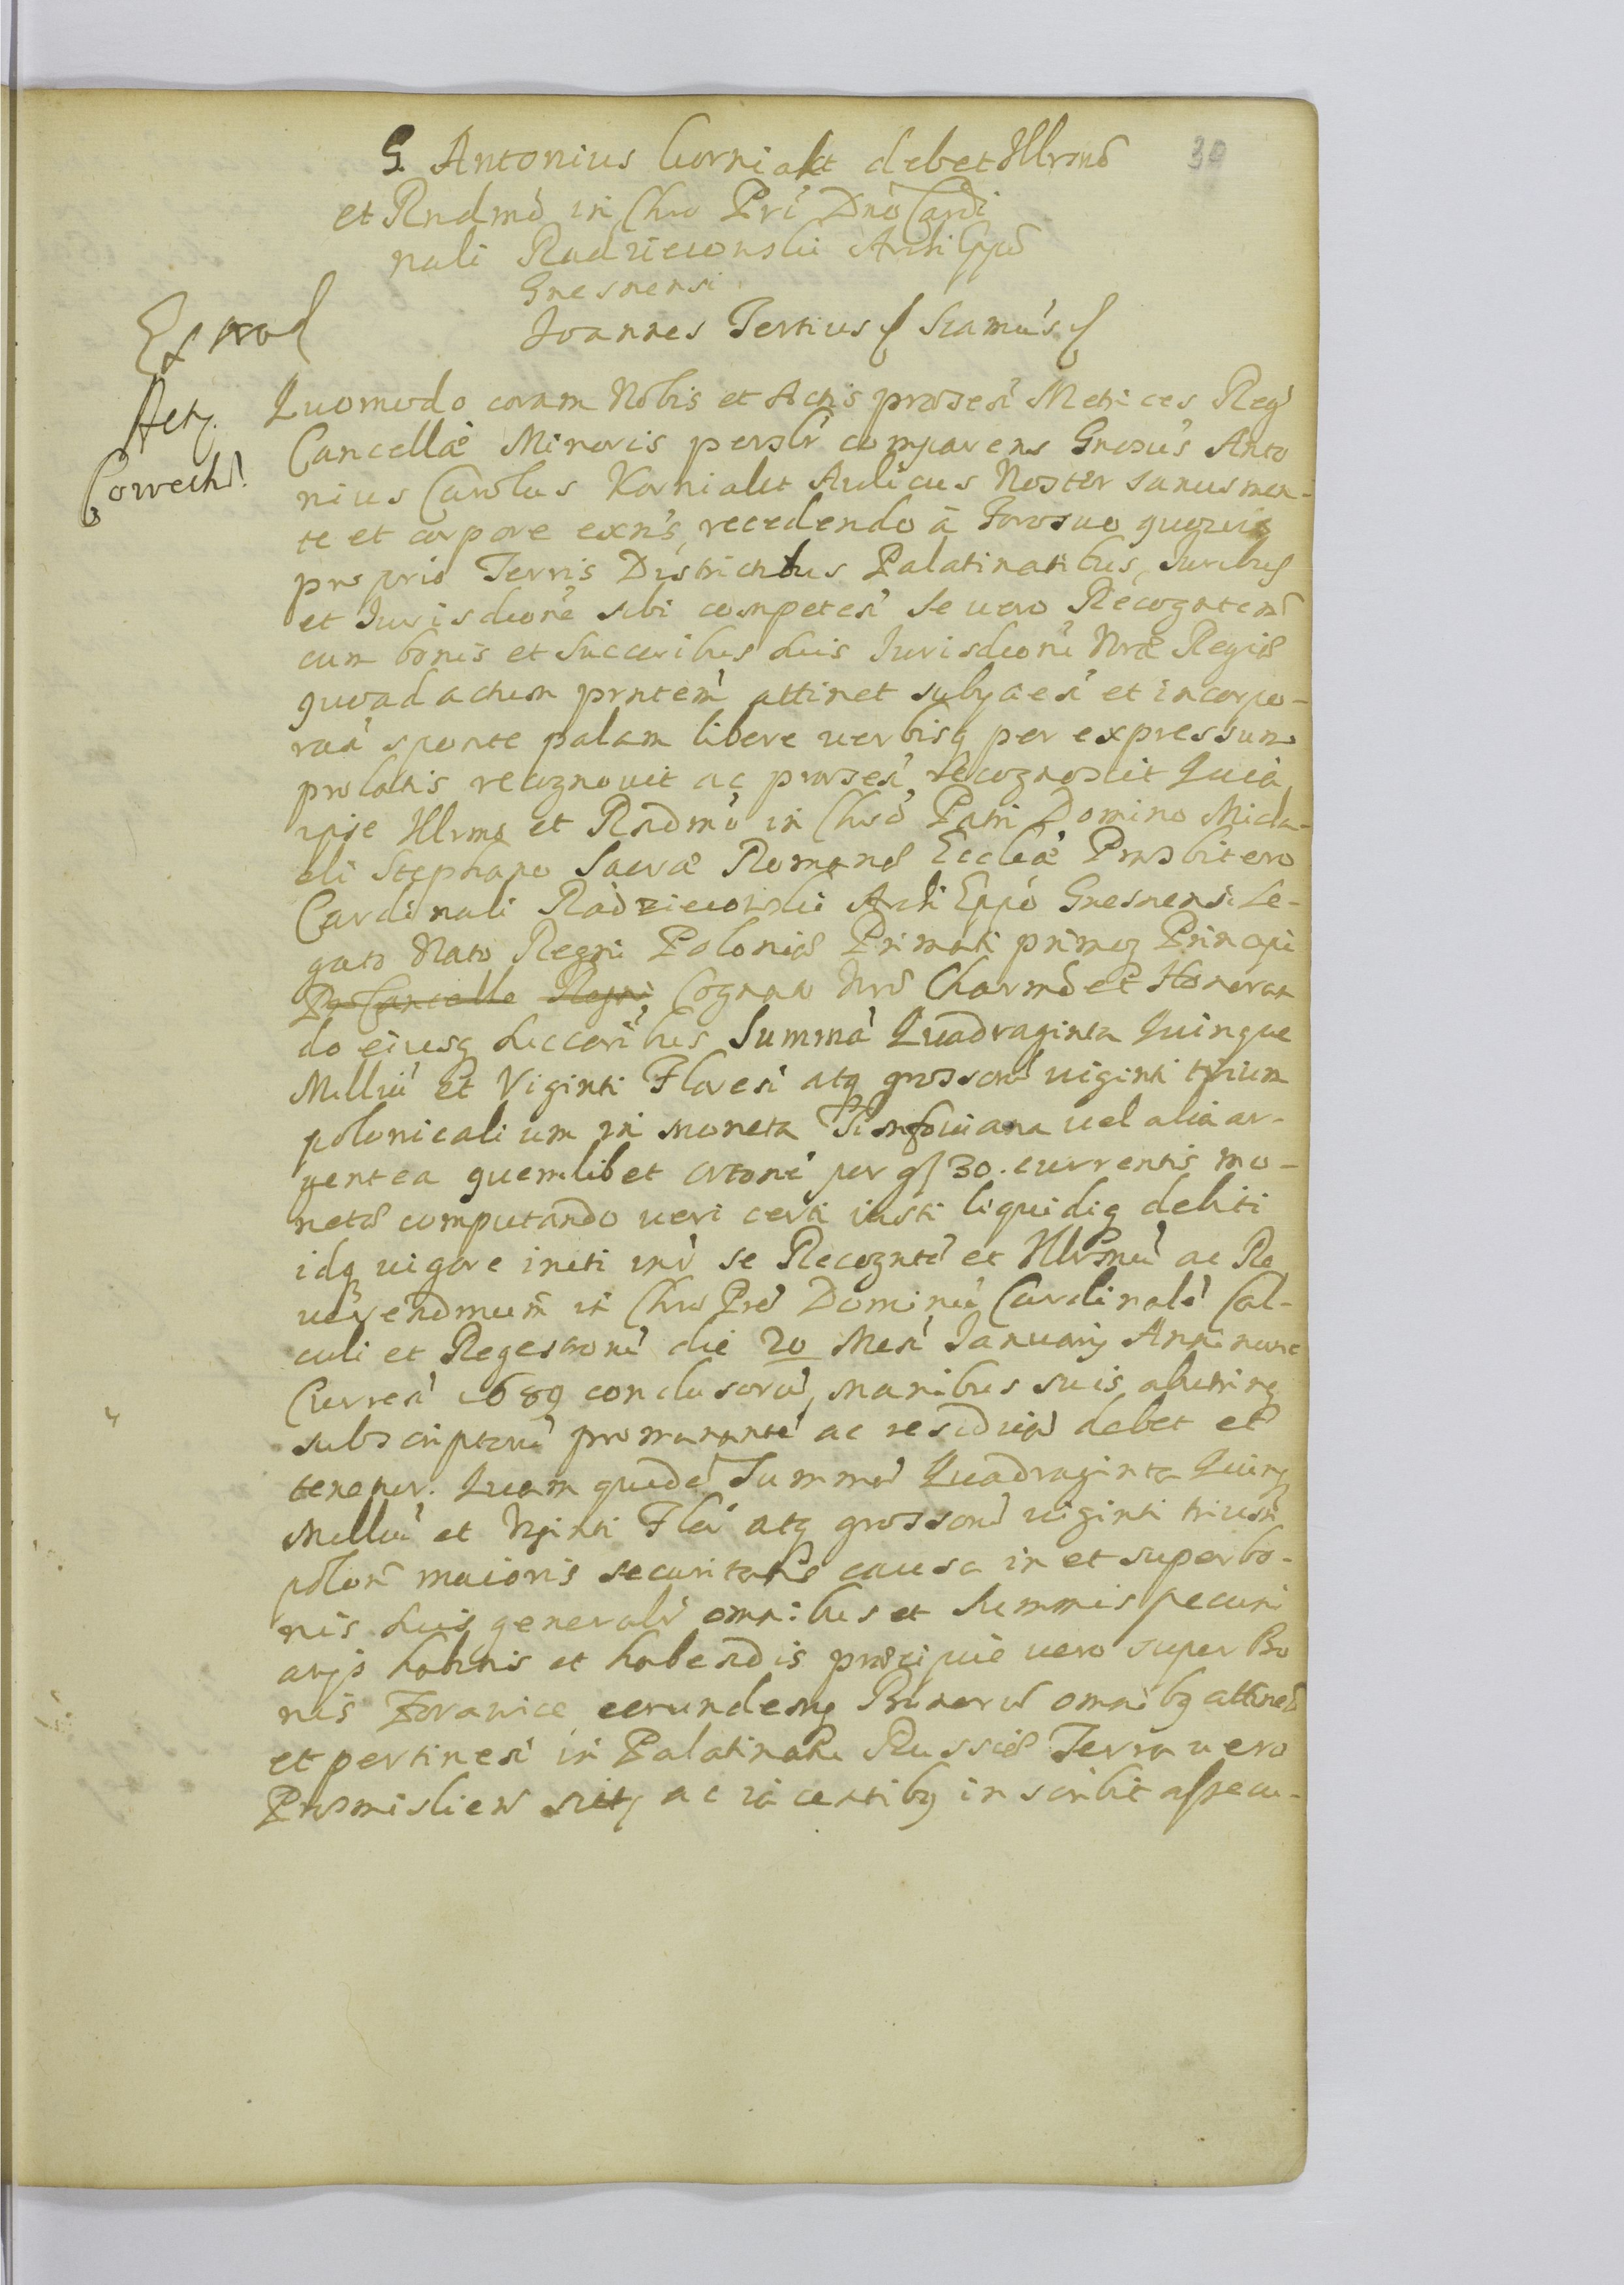 G. Antonius Corniakt debet Illrmo
39
et Rndmo in Chro Pri Dno Cardi
nali Radzieiowski Archi Eppo
Gnesnensi.
Joannes Tertius Scamus
Extrad
Actz.
Correcta.
Quomodo coram Nobis et Actis praesen Metrices Reg
Cancellae Minoris persлr comparens Gnosus Anto
nius Carolus Korniakt Aulicus Noster sanus men-
te et corpore exns, recedendo à Foro suo quovis
proprio Terris Districtibus Palatinatibus, Juribus
et Jurisdione sibi competen se vero Recogntem
cum bonis et Succoribus suis Jurisdioni Nrae Regiae
quoad actum prntem attinet subycien et incorpo-
ran sponte palam libere verbisq per expressum
prolatis recognovit ac praesen recognoscit Quia
ipse Illrmo et Rndmo in Chro Patri Domino Micha-
eli Stephano Sacrae Romanae Eccliae Praesbitero
Cardinali Radzieiowski Archi Eppo Gnesnensi Le-
gato Nato Regni Poloniae Primati primoq Principi
Pro Cancello Regni, Cognato Nro Charmo et Honoran
do eiusq Succoribus Summa Quadraginta Quinque
Milliu et Viginti Floren atq grossoru viginti trium
polonicalium in moneta Timfoviana vel alia ar-
gentea quemlibet ortone per gs 30. currentis mo-
netae computando veri certi iusti liquidiq debiti
idq vigore initi inr se Recognte et Illrmu ac Re
verendmum in Chro Pre Dominu Cardinale Cal-
culi et Regestroru die 20 Men January Anni nunc
Curren 1689 conclusoru, manibus suis, abutrinq
subscriptoru promanante ac residua debet et
tenetur. Quam quide Summa Quadraginta Quinq
Milliu et Viginti Flo atq grossoru viginti trium
polon maioris securitatis causa in et super bo-
nis suis generalr omnibus et Summis pecuni
arys habitis et habendis praecipue vero super Bo
nis Zorawice eorundemq Bonoru omnibq attinen
et pertinen in Palatinatu Russiae Terra vero
Praemislien sitq ac iacentibq inscribit assecu-